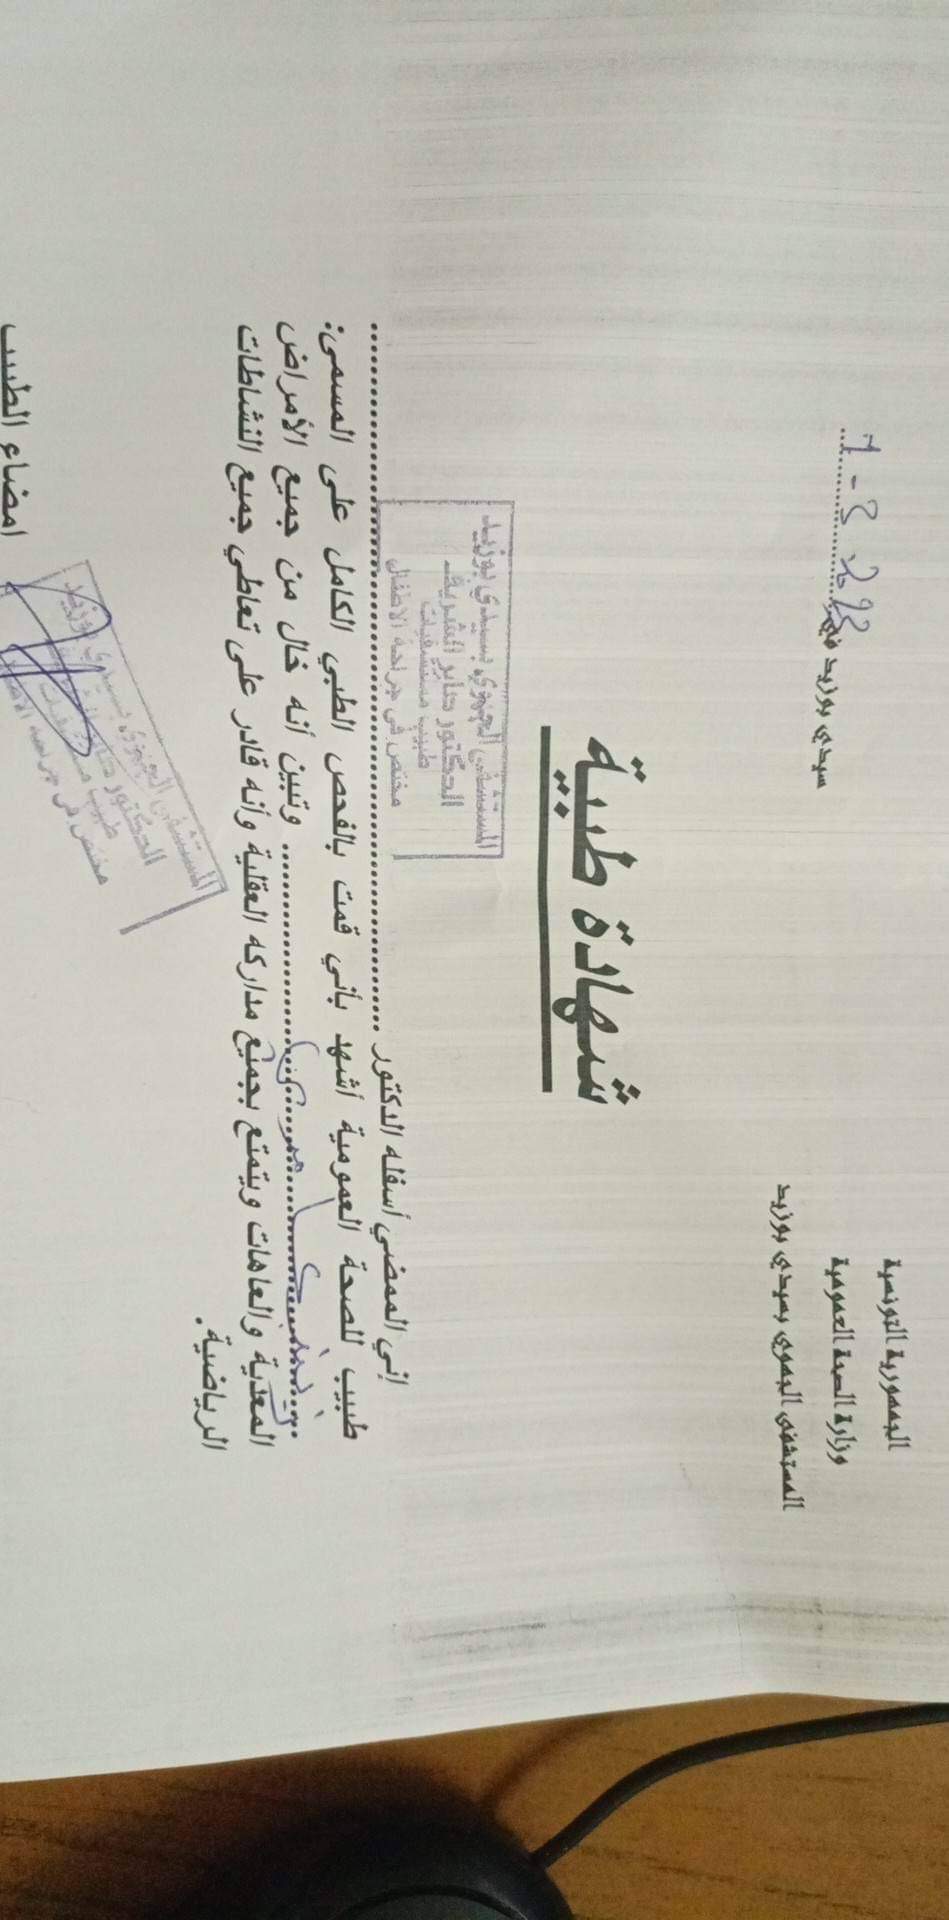 الجمهورية التونسية
وزارة الصحة العمومية
المستشفى الجهوي بسيدي بوزيد
سيدي بوزيد في
شهادة طبية
المستشفى الجهوي بسيدي بوزيد
الدكتور
طبيب مستشفيات
مختص في جراحة الاطفال
إني الممضي أسفله الدكتور
طبيب للصحة العمومية أشهد بأني قمت بالفحص الطبي الكامل على المسمى:
وتبين أنه خال من جميع الأمراض
المعدية والعاهات ويتمتع بجميع مداركه العقلية وأنه قادر على تعاطي جميع النشاطات
الرياضية.
امضاء الطبيب
المستشفى الجهوي بسيدي بوزيد
الدكتور
طبيب
مختص في جراحة